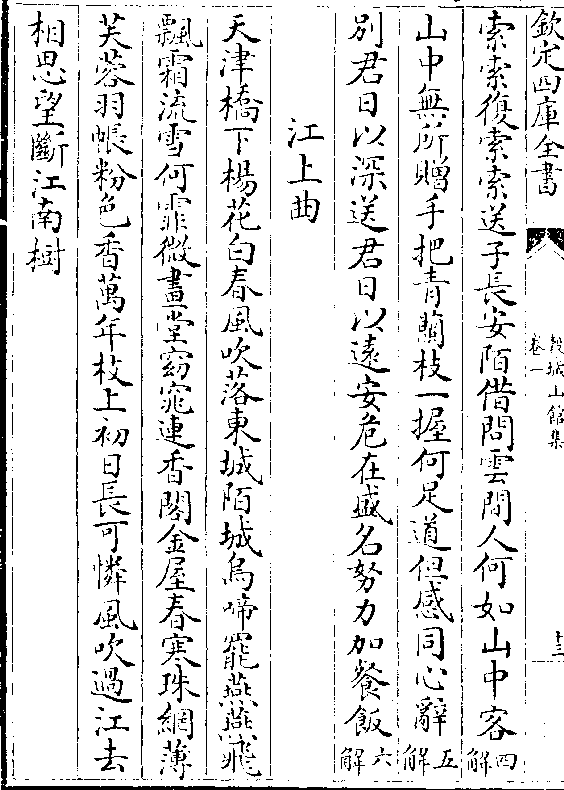 欽定四庫全書
穀城山館集
卷一
十三
索索復索索送子長安陌借問雲間人何如山中客四解
山中無所贈手把青蘭枝一握何足道但感同心辭五解
別君日以深送君日以遠安危在盛名努力加餐飯六解
江上曲
天津橋下楊花白春風吹落東城陌城烏啼罷燕燕飛
飄霜流雪何霏微畫堂窈窕連香閣金屋春寒珠網薄
芙蓉羽帳粉色香萬年枝上初日長可憐風吹過江去
相思望斷江南樹